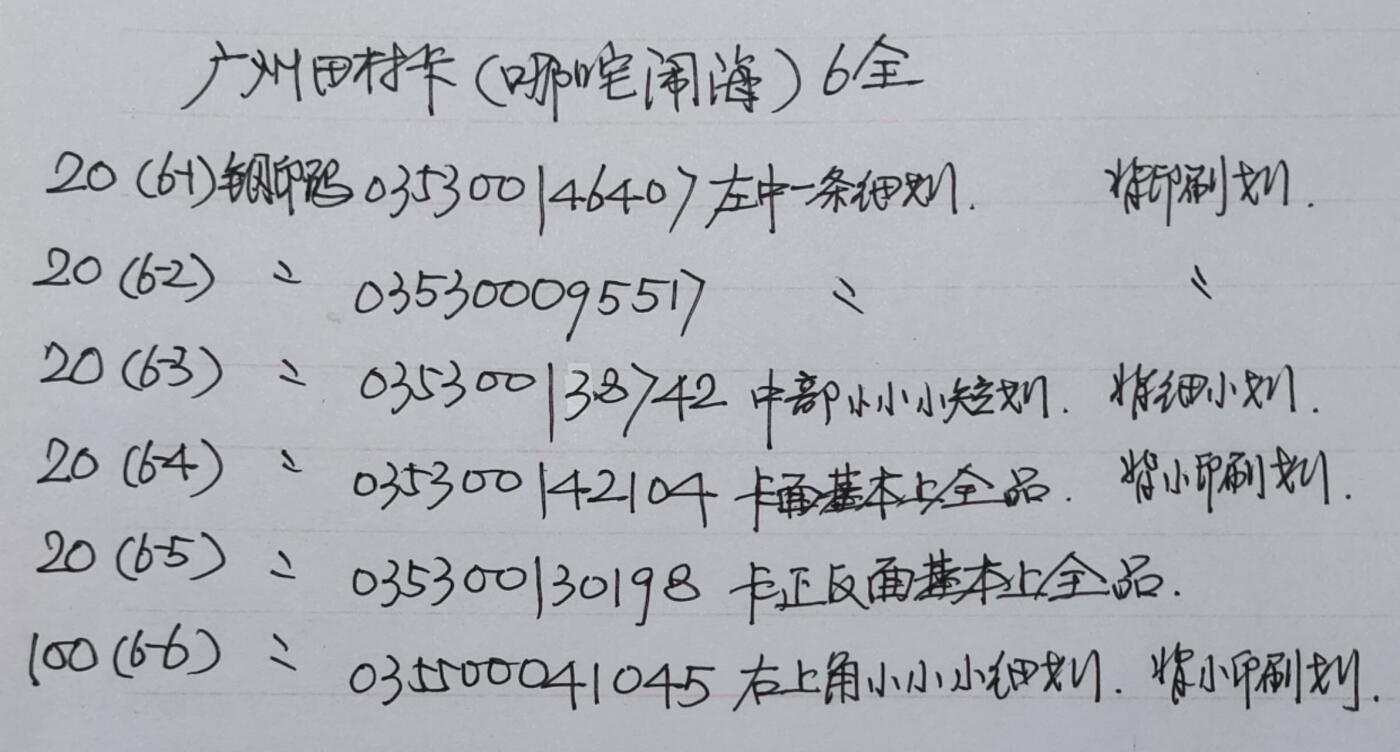 广州田村卡(哪吒闹海)6全
20(6-1)钢印码 035300146407 左中一条细划. 背印刷划.
20(6-2) 〃 035300095517 〃 〃
20(6-3) 〃 035300138742 中部小小小短划. 背细小划.
20(6-4) 〃 035300142104 卡面基本上全品. 背小印刷划.
20(6-5) 〃 035300130198 卡正反面基本上全品.
100(6-6) 〃 035500041045 右上角小小小细划. 背小印刷划.